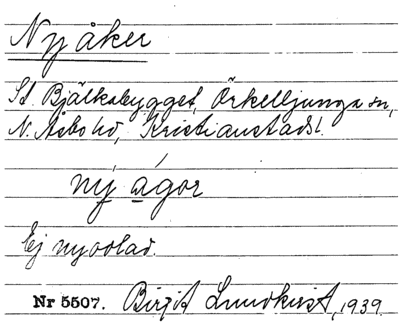 Nyåker
St Bjälkabygget, Örkelljunga sn,
N. Åsbo hd, Kristianstads l.
ný ágor
Ej nyodlad.
Nr 5507. Birgit Lundkvist, 1939.